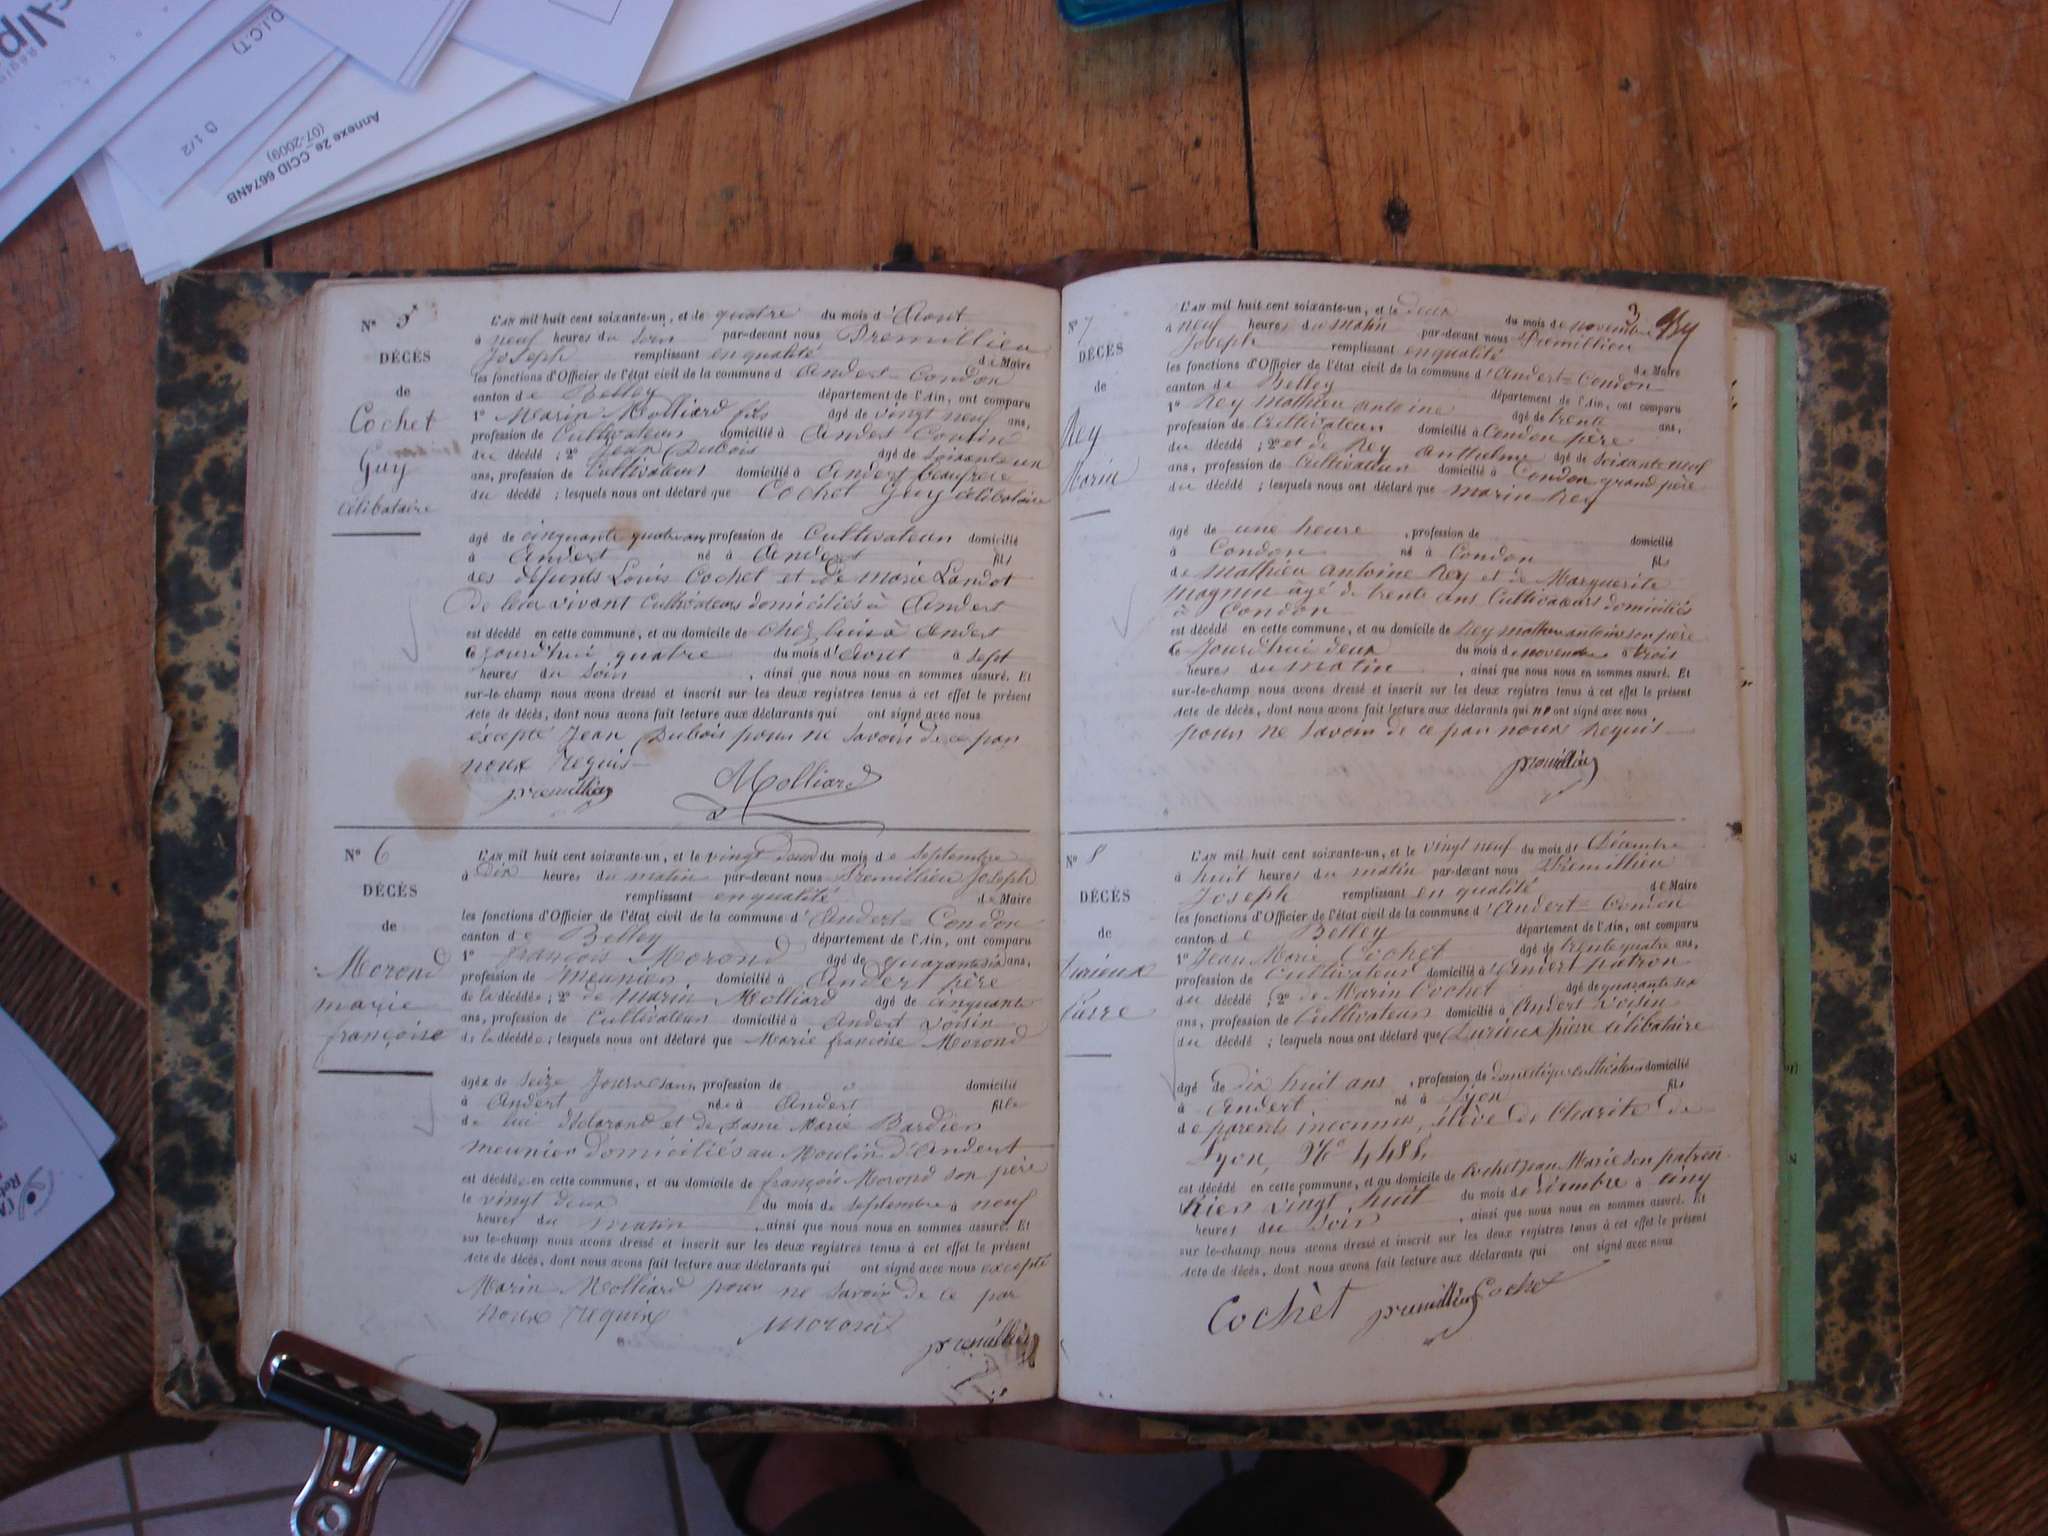 D.I.C.T)
D 1/2
Annexe 2e_CCID 6674NB
(07-2009)
N° 5
DÉCÈS
de
Cochet
Guy
Célibataire
L'AN mil huit cent soixante-un, et le quatre du mois d'Aout
à neuf heures du soir par-devant nous Premillieu
Joseph remplissant en qualité de Maire
les fonctions d'Officier de l'état civil de la commune d'Andert-Condon
canton de Belley département de l'Ain, ont comparu
1° Marin Molliard fils âgé de vingt neuf ans,
profession de Cultivateur domicilié à Andert Cousin
du décédé ; 2° Jean Dubois âgé de soixante un
ans, profession de Cultivateur domicilié à Andert beaufrere
du décédé ; lesquels nous ont déclaré que Cochet Guy célibataire
âgé de cinquante quatre ans, profession de Cultivateur domicilié
à Andert né à Andert fils
des défunts Louis Cochet et de marie Landot
de leur vivant Cultivateurs domiciliés à Andert
est décédé en cette commune, et au domicile de chez lui à Andert
le jourd'hui quatre du mois d'Aout à sept
heures du soir, ainsi que nous nous en sommes assuré. Et
sur-le-champ nous avons dressé et inscrit sur les deux registres tenus à cet effet le présent
Acte de décès, dont nous avons fait lecture aux déclarants qui ont signé avec nous
excepté Jean Dubois pour ne savoir de ce par
nous requis
premillieu Molliard
N° 6
DÉCÈS
de
Morond
marie
françoise
L'AN mil huit cent soixante-un, et le vingt deux du mois de septembre
à Dix heures du matin par-devant nous Premillieu Joseph
remplissant en qualité de Maire
les fonctions d'Officier de l'état civil de la commune d'Andert-Condon
canton de Belley département de l'Ain, ont comparu
1° françois Morond âgé de quarante six ans,
profession de meunier domicilié à Andert père
de la décédée ; 2° de Marin Molliard âgé de cinquante
ans, profession de Cultivateur domicilié à Andert voisin
de la décédée ; lesquels nous ont déclaré que Marie françoise Morond
âgée de seize jours sans profession de domicilié
à Andert née à Andert fille
de lui Morond et de dame Marie Bardien
meunier domiciliés au Moulin d'Andert
est décédée en cette commune, et au domicile de françois Morond son père
le vingt deux du mois de septembre à neuf
heures du matin, ainsi que nous nous en sommes assuré. Et
sur-le-champ nous avons dressé et inscrit sur les deux registres tenus à cet effet le présent
Acte de décès, dont nous avons fait lecture aux déclarants qui ont signé avec nous excepté
Marin Molliard pour ne savoir de ce par
nous requis
Morond
premillieu
3
N° 7
DÉCÈS
de
Rey
Marin
L'AN mil huit cent soixante-un, et le deux du mois de novembre
à neuf heures du matin par-devant nous Premillieu
Joseph remplissant en qualité de Maire
les fonctions d'Officier de l'état civil de la commune d'Andert-Condon
canton de Belley département de l'Ain, ont comparu
1° Rey mathieu antoine âgé de trente ans,
profession de Cultivateur domicilié à Condon père
du décédé ; 2° et de Rey anthelme âgé de soixante neuf
ans, profession de Cultivateur domicilié à Condon grand père
du décédé ; lesquels nous ont déclaré que marin Rey
âgé de une heure, profession de domicilié
à Condon né à Condon fils
de mathieu antoine Rey et de Marguerite
magnin âgé de trente ans Cultivateurs domiciliés
à Condon
est décédé en cette commune, et au domicile de Rey mathieu antoine son père
le jourd'hui deux du mois de novembre à trois
heures du matin, ainsi que nous nous en sommes assuré. Et
sur-le-champ nous avons dressé et inscrit sur les deux registres tenus à cet effet le présent
Acte de décès, dont nous avons fait lecture aux déclarants qui ne ont signé avec nous
pour ne savoir de ce par nous Requis
premillieu
N° 8
DÉCÈS
de
Durieux
Pierre
L'AN mil huit cent soixante-un, et le vingt neuf du mois de Décembre
à huit heures du matin par-devant nous Premillieu
Joseph remplissant en qualité de Maire
les fonctions d'Officier de l'état civil de la commune d'Andert-Condon
canton de Belley département de l'Ain, ont comparu
1° Jean Marie Cochet âgé de trente quatre ans,
profession de Cultivateur domicilié à Andert patron
du décédé ; 2° de Marin Cochet âgé de quarante six
ans, profession de Cultivateur domicilié à Andert voisin
du décédé ; lesquels nous ont déclaré que Durieux pierre célibataire
âgé de dix huit ans, profession de domestique cultivateur domicilié
à Andert né à Lyon fils
de parents inconnus, élève de Charité de
Lyon N°
est décédé en cette commune, et au domicile de Cochet jean Marie son patron
hier vingt huit du mois de décembre à cinq
heures du soir, ainsi que nous nous en sommes assuré. Et
sur-le-champ nous avons dressé et inscrit sur les deux registres tenus à cet effet le présent
Acte de décès, dont nous avons fait lecture aux déclarants qui ont signé avec nous
Cochet premillieu Cochet